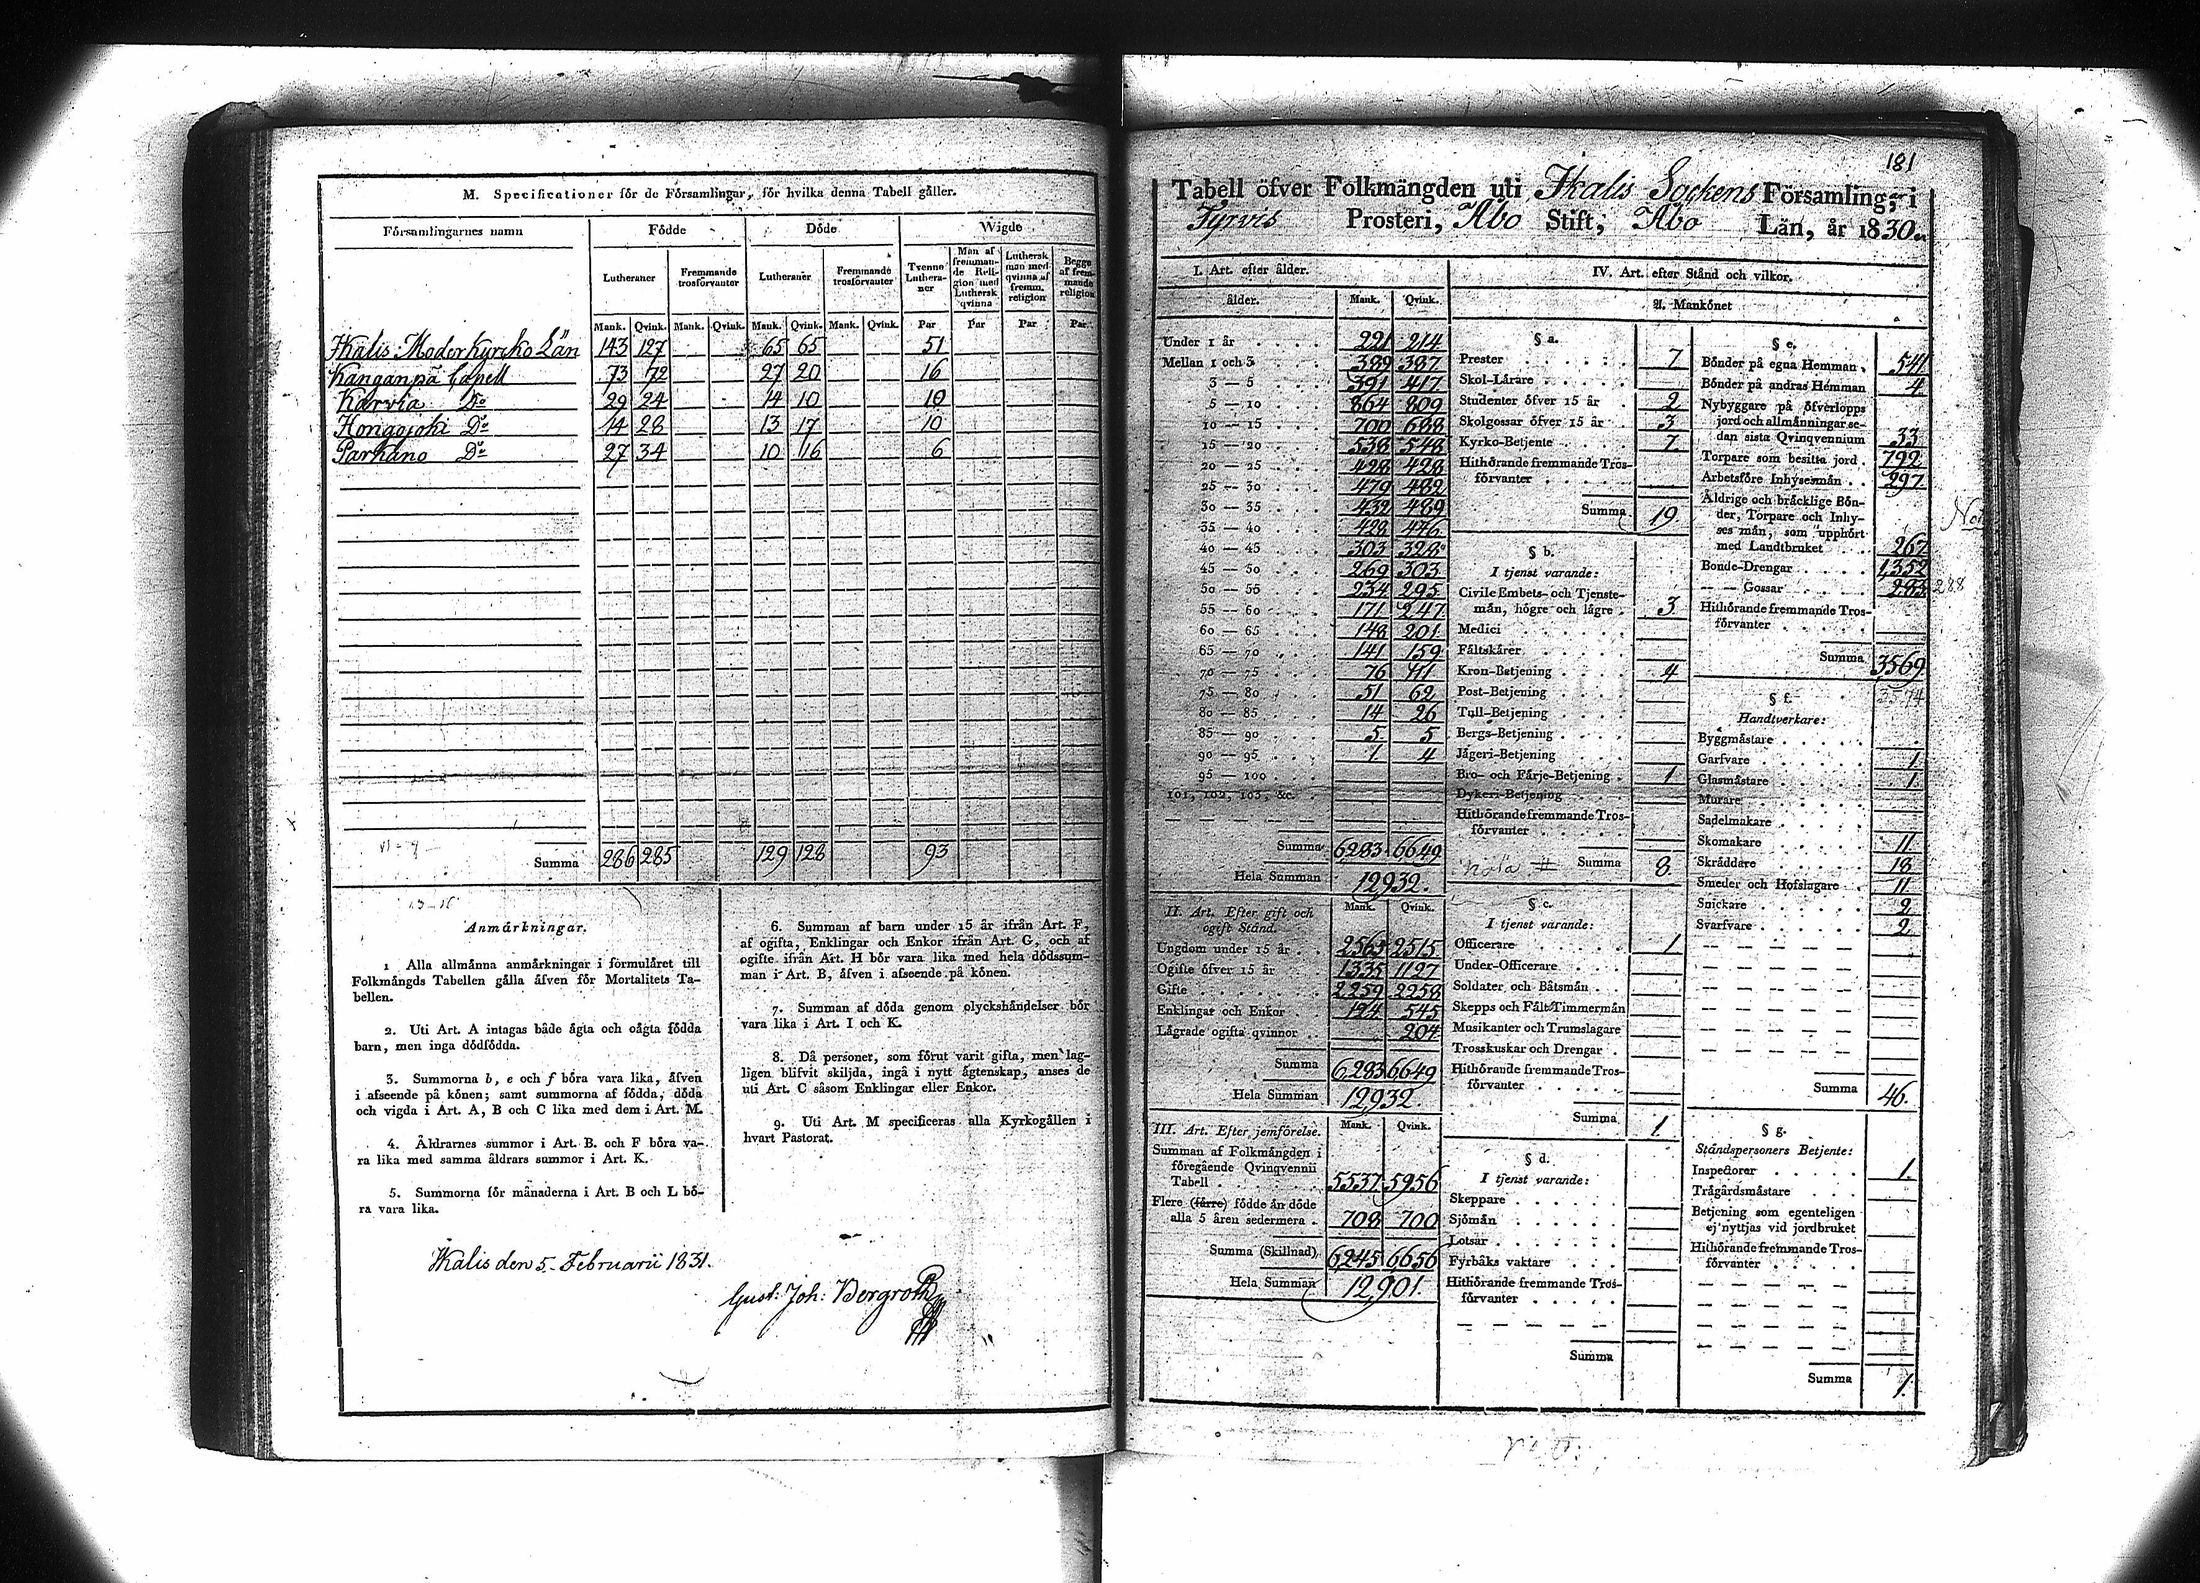 M. Specificationer för de Församlingar, för hvilka denna Tabell gäller.
Församlingarnes namn Födde Döde Wigde
Lutheraner Fremmande trosförvanter Lutheraner Fremmande trosförvanter Tvenne Lutheraner Man af fremmande Religion med Luthersk qvinna Luthersk man med qvinna af fremm. religion Begge af fremmande religion
Mank. Qvink. Mank. Qvink. Mank. Qvink. Mank. Qvink. Par Par Par Par
Ikalis Moderkyrko Län 143 127 65 65 51
Kanganpä Capell 73 72 27 20 16
Karvia Do 29 24 14 10 10
Hongojoki Do 14 28 13 17 10
Parkano Do 27 34 10 16 6
Summa 286 285 129 128 93
Anmärkningar.
1 Alla allmänna anmärkningar i formuläret till
Folkmängds Tabellen gälla äfven för Mortalitets Ta-
bellen.
2. Uti Art. A intagas både ägta och oägta födda
barn, men inga dödfödda.
3. Summorna b, e och f böra vara lika, äfven
i afseende på könen; samt summorna af födda, döda
och vigda i Art. A, B och C lika med dem i Art. M.
4. Åldrarnes summor i Art. B. och F böra va-
ra lika med samma åldrars summor i Art. K.
5. Summorna för månaderna i Art. B och L bö-
ra vara lika.
6. Summan af barn under 15 år ifrån Art. F,
af ogifta, Enklingar och Enkor ifrån Art. G, och af
ogifte ifrån Art. H bör vara lika med hela dödssum-
man i Art. B, äfven i afseende på könen.
7. Summan af döda genom olyckshändelser bör
vara lika i Art. I och K.
8. Då personer, som förut varit gifta, men lag-
ligen blifvit skiljda, ingå i nytt ägtenskap, anses de
uti Art. C såsom Enklingar eller Enkor.
9. Uti Art. M specificeras alla Kyrkogällen i
hvart Pastorat.
Ikalis den 5 Februarii 1831.
Gust: Joh: Bergroth
181
Tabell öfver Folkmängden uti Ikalis Sockens Församling, i
Tyrvis Prosteri, Åbo Stift, Åbo Län, år 1830.
I. Art. efter ålder.
ålder. Mank. Qvink.
Under 1 år 221 214
Mellan 1 och 3 389 387
3 — 5 391 417
5 — 10 864 809
10 — 15 700 688
15 — 20 538 548
20 — 25 428 428
25 — 30 479 482
30 — 35 432 489
35 — 40 428 446
40 — 45 303 328
45 — 50 269 303
50 — 55 234 295
55 — 60 171 247
60 — 65 148 201
65 — 70 141 159
70 — 75 76 111
75 — 80 51 62
80 — 85 14 26
85 — 90 5 5
90 — 95 1 4
95 — 100
101, 102, 103, &c.
Summa 6283 6649
Hela Summan 12932.
II. Art. Efter gift och ogift Stånd. Mank. Qvink.
Ungdom under 15 år 2565 2515
Ogifte öfver 15 år 1335 1127
Gifte 2259 2258
Enklingar och Enkor 124 545
Lägrade ogifta qvinnor 204
Summa 6,283 6649
Hela Summan 12,932.
III. Art. Efter jemförelse. Mank. Qvink.
Summan af Folkmängden i
föregående Qvinqvennii
Tabell 5537 5956
Flere (färre) födde än döde
alla 5 åren sedermera 708 700
Summa (Skillnad) 6,245 6,656
Hela Summan 12,901.
IV. Art. efter Stånd och vilkor.
A. Mankönet
§ a.
Prester 7
Skol-Lärare
Studenter öfver 15 år 2
Skolgossar öfver 15 år 3
Kyrko-Betjente 7.
Hithörande fremmande Tros-
förvanter
Summa 19.
§ b.
I tjenst varande:
Civile Embets- och Tjenste-
män, högre och lägre 3
Medici
Fältskärer
Kron-Betjening 4
Post-Betjening
Tull-Betjening
Bergs-Betjening
Jägeri-Betjening
Bro- och Färje-Betjening 1
Dykeri-Betjening
Hithörande fremmande Tros-
förvanter
Nota # Summa 8.
§ c.
I tjenst varande:
Officerare 1
Under-Officerare
Soldater och Båtsmän
Skepps och Fält-Timmermän
Musikanter och Trumslagare
Trosskuskar och Drengar
Hithörande fremmande Tros-
förvanter
Summa 1.
§ d.
I tjenst varande:
Skeppare
Sjömän
Lotsar
Fyrbåks vaktare
Hithörande fremmande Tros-
förvanter
Summa
§ e.
Bönder på egna Hemman 541
Bönder på andras Hemman 4.
Nybyggare på öfverlopps
jord och allmänningar se-
dan sista Qvinqvennium 33
Torpare som besitta jord 792
Arbetsföre Inhysesmän 297.
Äldrige och bräcklige Bön-
der, Torpare och Inhy-
ses män, som upphört
med Landtbruket 267
Bonde-Drengar 1,352
— — Gossar 283 288
Hithörande fremmande Tros-
förvanter
Summa 3,569
3574
§ f.
Handtverkare:
Byggmästare
Garfvare 1.
Glasmästare 1.
Murare
Sadelmakare
Skomakare 11
Skräddare 18
Smeder och Hofslagare 11.
Snickare 2
Svarfvare 2
Summa 46.
§ g.
Ståndspersoners Betjente:
Inspector 1.
Trägårdsmästare
Betjening som egenteligen
ej nyttjas vid jordbruket
Hithörande fremmande Tros-
förvanter
Summa 1.